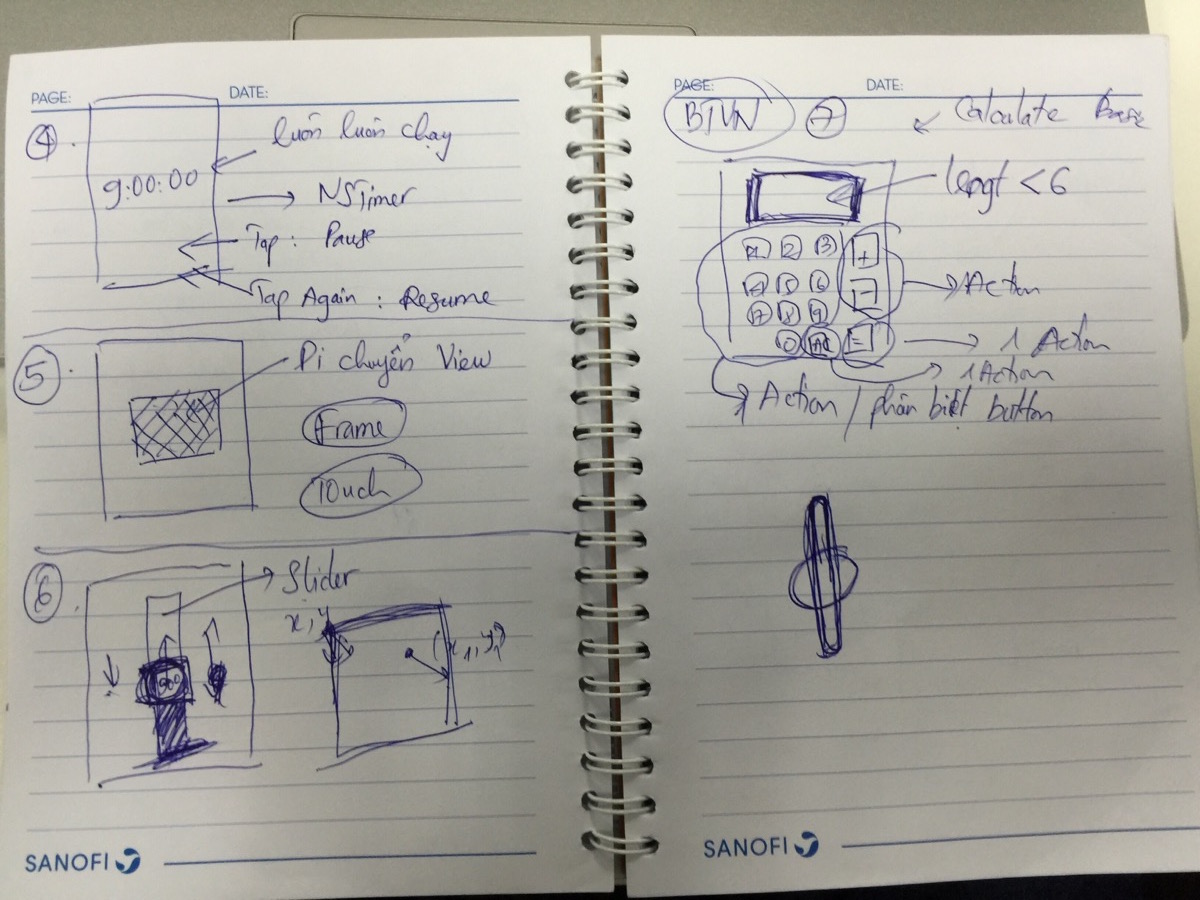 PAGE:
DATE:
4.
luôn luôn chạy
9:00:00
NSTimer
Tap: Pause
Tap Again: Resume
5
Di chuyển View
Frame
Touch
6.
Slider
x, y
(x1, y1)
SANOFI
PAGE:
DATE:
BTVN
7
Calculate Basic
lengt < 6
1 2 3 +
4 5 6 -
1 Action
7 8 9
0 AC =
1 Action
1 Action
1 Action / phân biệt button
SANOFI